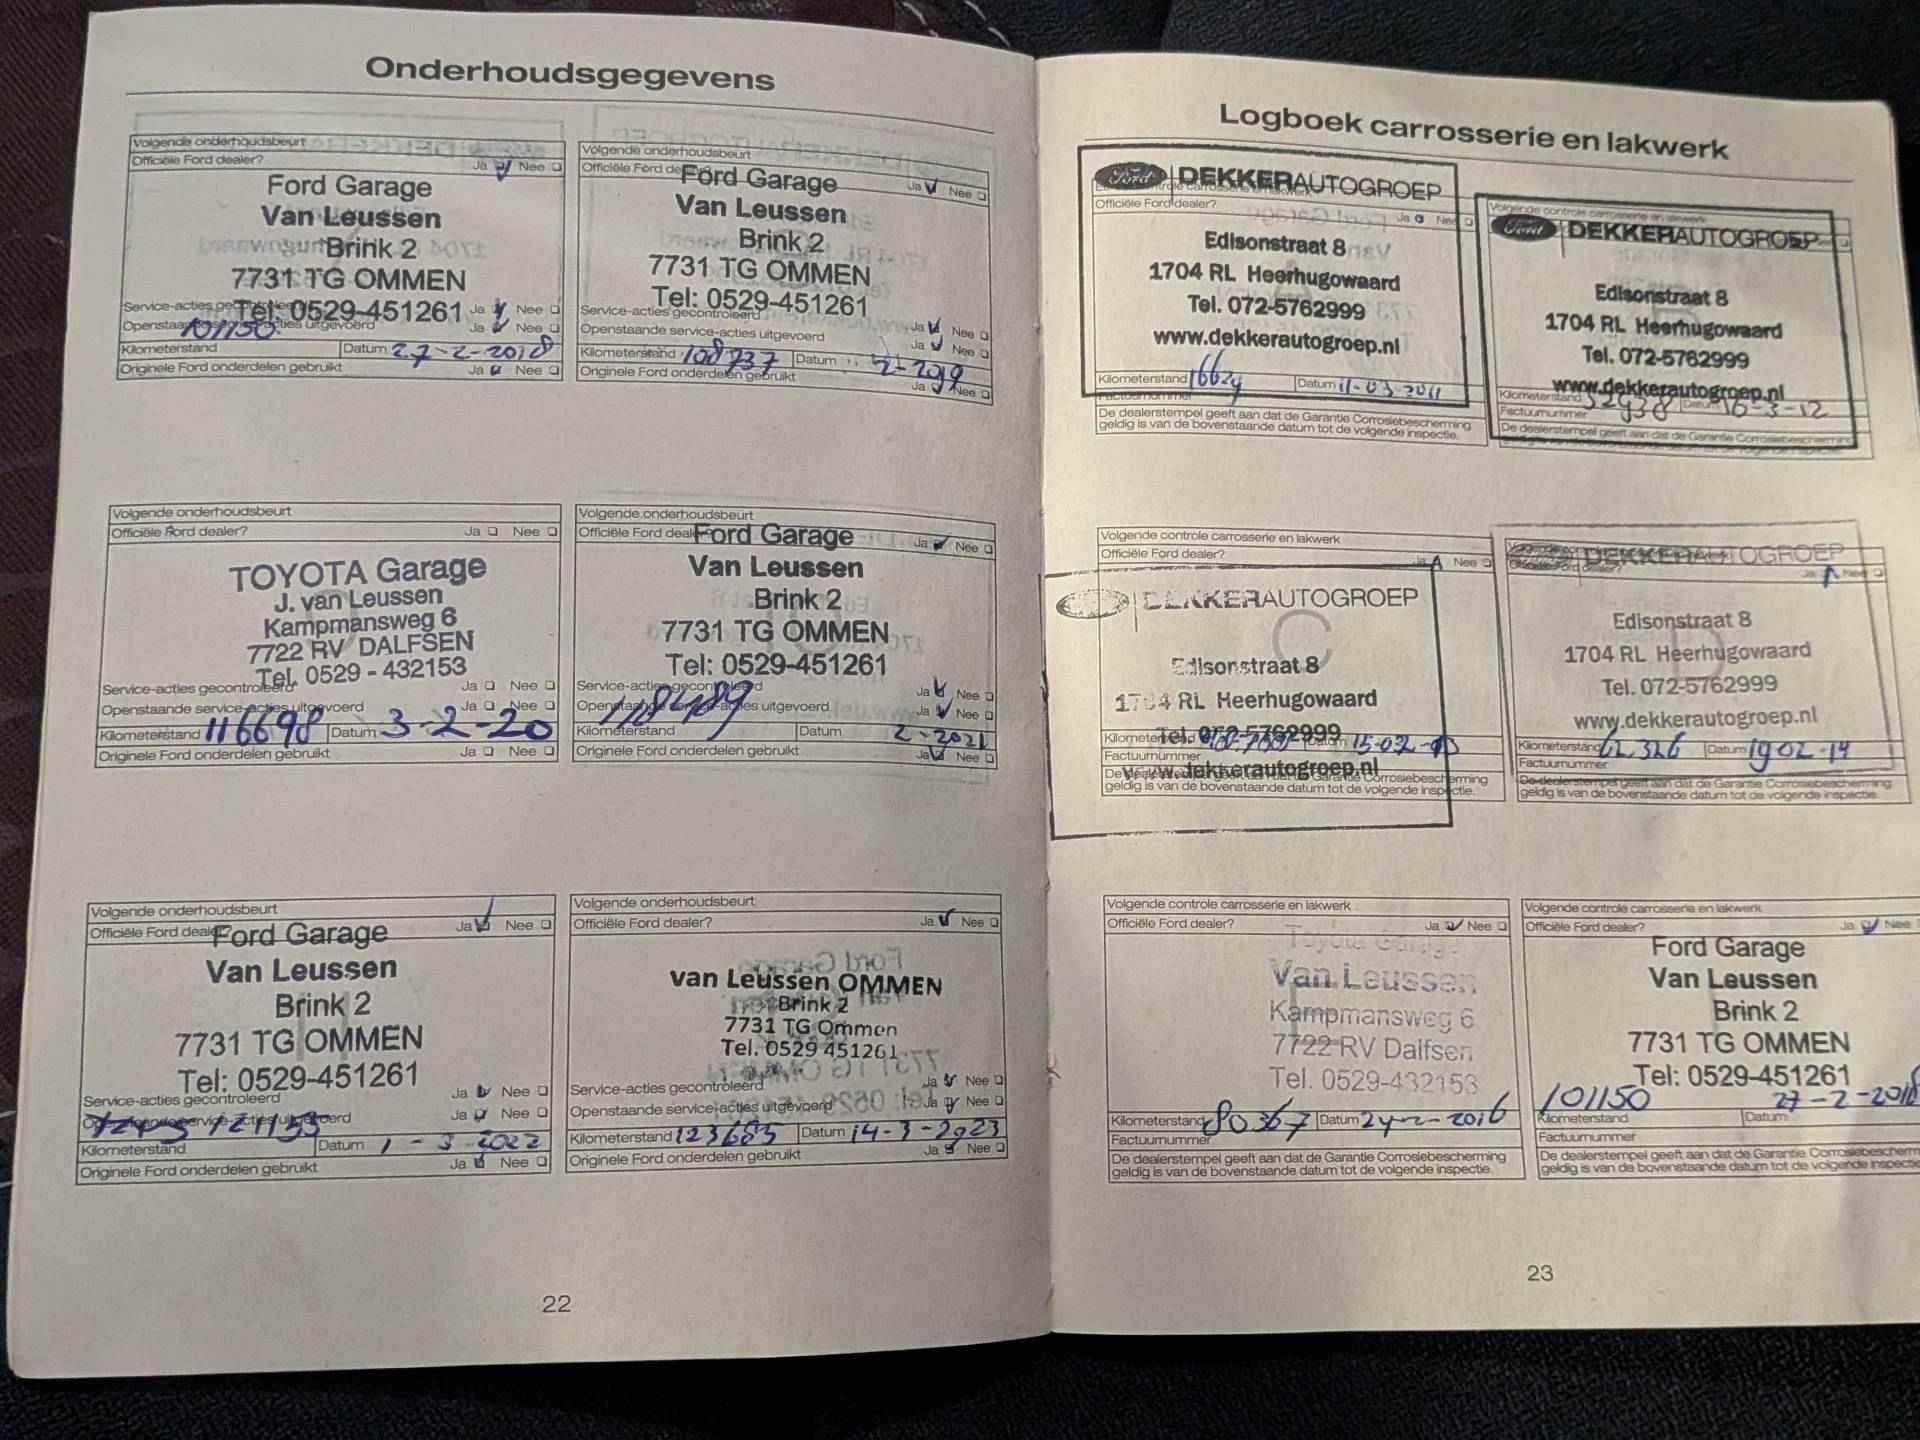 Onderhoudsgegevens
Volgende onderhoudsbeurt
Officiële Ford dealer? Ja Nee
Ford Garage
Van Leussen
Brink 2
7731 TG OMMEN
Tel: 0529-451261
Service-acties gecontroleerd Ja Nee
Openstaande service-acties uitgevoerd Ja Nee
101150
Kilometerstand Datum 27-2-2018
Originele Ford onderdelen gebruikt Ja Nee
Volgende onderhoudsbeurt
Officiële Ford dealer? Ja Nee
Ford Garage
Van Leussen
Brink 2
7731 TG OMMEN
Tel: 0529-451261
Service-acties gecontroleerd Ja Nee
Openstaande service-acties uitgevoerd Ja Nee
Kilometerstand 108737 Datum 2-2019
Originele Ford onderdelen gebruikt Ja Nee
Volgende onderhoudsbeurt
Officiële Ford dealer? Ja Nee
TOYOTA Garage
J. van Leussen
Kampmansweg 6
7722 RV DALFSEN
Tel. 0529 - 432153
Service-acties gecontroleerd Ja Nee
Openstaande service-acties uitgevoerd Ja Nee
Kilometerstand 116698 Datum 3-2-20
Originele Ford onderdelen gebruikt Ja Nee
Volgende onderhoudsbeurt
Officiële Ford dealer? Ja Nee
Ford Garage
Van Leussen
Brink 2
7731 TG OMMEN
Tel: 0529-451261
Service-acties gecontroleerd Ja Nee
Openstaande service-acties uitgevoerd Ja Nee
118489
Kilometerstand Datum 2-2021
Originele Ford onderdelen gebruikt Ja Nee
Volgende onderhoudsbeurt
Officiële Ford dealer? Ja Nee
Ford Garage
Van Leussen
Brink 2
7731 TG OMMEN
Tel: 0529-451261
Service-acties gecontroleerd Ja Nee
Openstaande service-acties uitgevoerd Ja Nee
121153
Kilometerstand Datum 1-3-2022
Originele Ford onderdelen gebruikt Ja Nee
Volgende onderhoudsbeurt
Officiële Ford dealer? Ja Nee
van Leussen OMMEN
Brink 2
7731 TG Ommen
Tel. 0529 451261
Service-acties gecontroleerd Ja Nee
Openstaande service-acties uitgevoerd Ja Nee
Kilometerstand 123685 Datum 14-3-2023
Originele Ford onderdelen gebruikt Ja Nee
22
Logboek carrosserie en lakwerk
Ford DEKKERAUTOGROEP
Officiële Ford dealer? Ja Nee
Edisonstraat 8
1704 RL Heerhugowaard
Tel. 072-5762999
www.dekkerautogroep.nl
Kilometerstand 16624 Datum 11-03-2011
Factuurnummer
De dealerstempel geeft aan dat de Garantie Corrosiebescherming
geldig is van de bovenstaande datum tot de volgende inspectie.
Volgende controle carrosserie en lakwerk
Ford DEKKERAUTOGROEP
Edisonstraat 8
1704 RL Heerhugowaard
Tel. 072-5762999
www.dekkerautogroep.nl
Kilometerstand 32938 Datum 16-3-12
Factuurnummer
De dealerstempel geeft aan dat de Garantie Corrosiebescherming
Volgende controle carrosserie en lakwerk
Officiële Ford dealer? Ja Nee
DEKKERAUTOGROEP
C
Edisonstraat 8
1704 RL Heerhugowaard
Tel. 072-5762999
Kilometerstand Datum
Factuurnummer
www.dekkerautogroep.nl
De dealerstempel geeft aan dat de Garantie Corrosiebescherming
geldig is van de bovenstaande datum tot de volgende inspectie.
DEKKERAUTOGROEP
Officiële Ford dealer? Ja Nee
Edisonstraat 8
1704 RL Heerhugowaard
Tel. 072-5762999
www.dekkerautogroep.nl
Kilometerstand 62.326 Datum 19 02-14
Factuurnummer
De dealerstempel geeft aan dat de Garantie Corrosiebescherming
geldig is van de bovenstaande datum tot de volgende inspectie.
Volgende controle carrosserie en lakwerk
Officiële Ford dealer? Ja Nee
Toyota Garage
Van Leussen
Kampmansweg 6
7722 RV Dalfsen
Tel. 0529-432153
Kilometerstand 80367 Datum 24-2-2016
Factuurnummer
De dealerstempel geeft aan dat de Garantie Corrosiebescherming
geldig is van de bovenstaande datum tot de volgende inspectie.
Volgende controle carrosserie en lakwerk
Officiële Ford dealer? Ja Nee
Ford Garage
Van Leussen
Brink 2
7731 TG OMMEN
Tel: 0529-451261
101150 27-2-2018
Kilometerstand Datum
Factuurnummer
De dealerstempel geeft aan dat de Garantie
geldig is van de bovenstaande datum tot de volgende
23